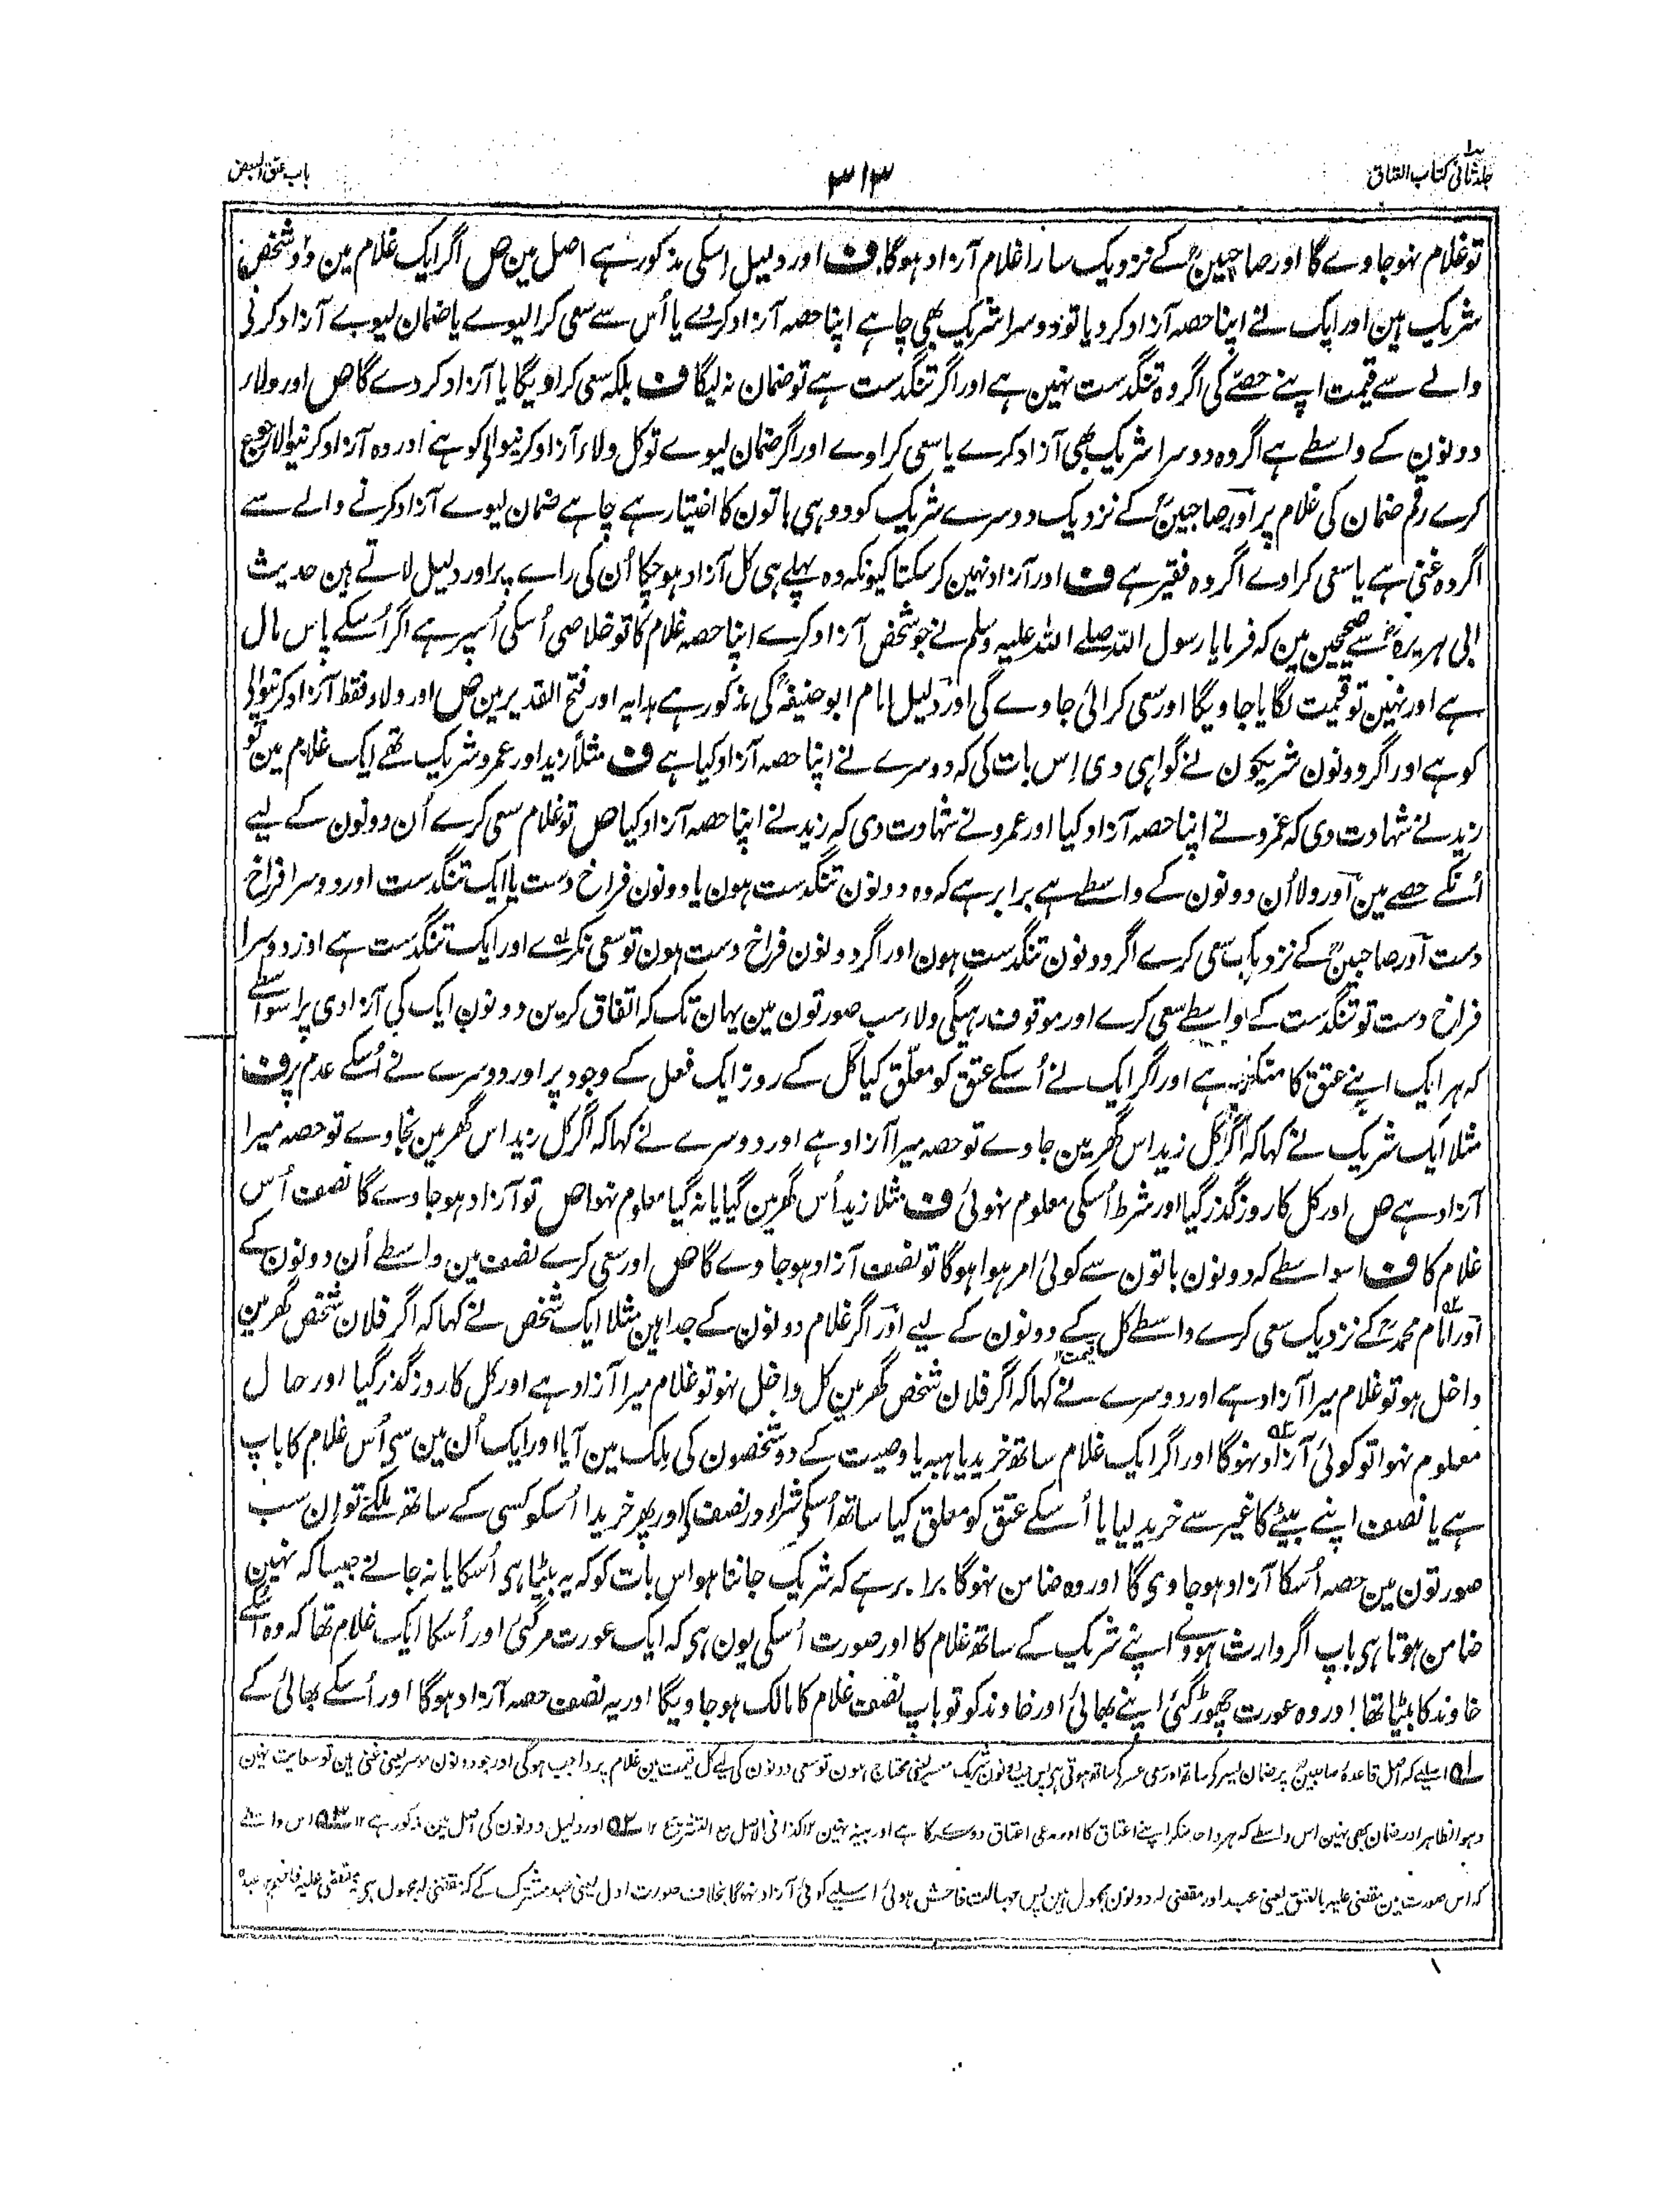 جلد ثانی کتاب العتاق
۳۱۳
باب عتق البعض
تو غلام نہو جاوے گا اور صاحبین کے نزدیک سارا غلام آزاد ہوگا ف اور دلیل اسکی مذکور ہے اصل مین ص اگر ایک غلام مین دو شخص
شریک ہین اور ایک نے اپنا حصہ آزاد کر دیا تو دوسرا شریک بھی چاہے اپنا حصہ آزاد کردے یا اُس سے سعی کرا لیوے یا ضمان لیوے آزاد کرنی
والے سے قیمت اپنے حصے کی اگر وہ تنگدست نہین ہے اور اگر تنگدست ہے تو ضمان نہ لیگا ف بلکہ سعی کراویگا یا آزاد کردے گا ص اور ولاء
دونون کے واسطے ہے اگر وہ دوسرا شریک بھی آزاد کرے یا سعی کراوے اور اگر ضمان لیوے تو کل ولاء آزاد کرنیوالی کو ہے اور وہ آزاد کرنیوالا رجوع
کرے رقم ضمان کی غلام پر اور صاحبین کے نزدیک دوسرے شریک کو دو ہی باتون کا اختیار ہے چاہے ضمان لیوے آزاد کرنے والے سے
اگر وہ غنی ہے یا سعی کراوے اگر وہ فقیر ہے ف اور آزاد نہین کر سکتا کیونکہ وہ پہلے ہی کل آزاد ہو چکا اُن کی رائے پر اور دلیل لاتے ہین حدیث
ابی ہریرہ سے صحیحین مین کہ فرمایا رسول اللہ صلے اللہ علیہ وسلم نے جو شخص آزاد کرے اپنا حصہ غلام کا تو خلاصی اُسکی اُسپر ہے اگر اُسکے پاس مال
ہے اور نہین تو قیمت لگایا جاویگا اور سعی کرائی جاوے گی اور دلیل امام ابو حنیفہ کی مذکور ہے ہدایہ اور فتح القدیر مین ص اور ولاء فقط آزاد کرنیوالی
کو ہے اور اگر دونون شریکون نے گواہی دی اِس بات کی کہ دوسرے نے اپنا حصہ آزاد کیا ہے ف مثلاً زید اور عمرو شریک تھے ایک غلام مین تو
زید نے شہادت دی کہ عمرو نے اپنا حصہ آزاد کیا اور عمرو نے شہادت دی کہ زید نے اپنا حصہ آزاد کیا ص تو غلام سعی کرے اُن دونون کے لیے
اُنکے حصے مین اور ولا اُن دونون کے واسطے ہے برابر ہے کہ وہ دونون تنگدست ہون یا دونون فراخ دست یا ایک تنگدست اور دوسرا فراخ
دست اور صاحبین کے نزدیک سعی کرے اگر دونون تنگدست ہون اور اگر دونون فراخ دست ہون تو سعی نکرے اور ایک تنگدست ہے اور دوسرا
فراخ دست تو تنگدست کے واسطے سعی کرے اور موقوف رہیگی ولاء سب صورتون مین یہان تک کہ اتفاق کرین دونون ایک کی آزادی پر اسواسطے
کہ ہر ایک اپنے عتق کا منکر ہے اور اگر ایک نے اُسکے عتق کو معلّق کیا کل کے روز ایک فعل کے وجود پر اور دوسرے نے اُسکے عدم پر ف
مثلا ایک شریک نے کہا کہ اگر کل زید اس گھر مین جاوے تو حصہ میرا آزاد ہے اور دوسرے نے کہا کہ اگر کل زید اس گھر مین نجاوے تو حصہ میرا
آزاد ہے ص اور کل کا روز گذر گیا اور شرط اُسکی معلوم نہوئی ف مثلا زید اُس گھر مین گیا یا نہ گیا معلوم نہوا ص تو آزاد ہو جاوے گا نصف اُس
غلام کا ف اسواسطے کہ دونون باتون سے کوئی امر ہوا ہوگا تو نصف آزاد ہو جاوے گا ص اور سعی کرے نصف مین واسطے اُن دونون کے
اور امام محمد کے نزدیک سعی کرے واسطے کل قیمت کے دونون کے لیے اور اگر غلام دونون کے جدا ہین مثلا ایک شخص نے کہا کہ اگر فلان شخص گھر مین
داخل ہو تو غلام میرا آزاد ہے اور دوسرے نے کہا کہ اگر فلان شخص گھر مین کل داخل نہو تو غلام میرا آزاد ہے اور کل کا روز گذر گیا اور حال
معلوم نہوا تو کوئی آزاد نہوگا اور اگر ایک غلام ساتھ خرید یا ہبہ یا وصیت کے دو شخصون کی ملک مین آیا اور ایک اُن مین سی اُس غلام کا باپ
ہے یا نصف اپنے بیٹے کا غیر سے خرید لیا یا اُسکے عتق کو معلق کیا ساتھ اُسکی شراء نصف کی اور پھر خریدا اُسکو کسی کے ساتھ ملکے تو اِن سب
صورتون مین حصہ اُسکا آزاد ہو جاوی گا اور وہ ضامن نہوگا برابر ہے کہ شریک جانتا ہو اس بات کو کہ یہ بیٹا ہی اُسکا یا نہ جانے جیسا کہ نہین
ضامن ہوتا ہی باپ اگر وارث ہووے اپنے شریک کے ساتھ غلام کا اور صورت اُسکی یون ہی کہ ایک عورت مرگئی اور اُسکا ایک غلام تھا کہ وہ اُسکے
خاوند کا بیٹا تھا اور وہ عورت چھوڑ گئی اپنے بھائی اور خاوند کو تو باپ نصف غلام کا مالک ہو جاویگا اور یہ نصف حصہ آزاد ہوگا اور اُسکے بھائی کے
لہ اسلیے کہ اصل قاعدۂ صاحبین پر ضمان یسر کے ساتھ اور سعی عسر کے ساتھ ہوتی ہی پس جب دونون شریک معسر یعنی محتاج ہون تو سعی دونون کی لیے کل قیمت مین غلام پر واجب ہوگی اور جو دونون موسر یعنی غنی ہین تو سعایت نہین
وہو الظاہر اور ضمان بھی نہین اس واسطے کہ ہر واحد منکر اپنے اعتاق کا اور مدعی اعتاق دوسرے کا ہے اور بینہ نہین ۱۲ کذا فی الاصل مع التشریح ۱۲ اور دلیل دونون کی اصل مین مذکور ہے ۱۲ اس واسطے
کہ اس صورت مین مقضی علیہ بالعتق یعنی عبد اور مقضی لہ دونون مجہول ہین پس جہالت فاحش ہوئی اسلیے کوئی آزاد نہوگا بخلاف صورت اول یعنی عبد مشترک کے کہ مقضی لہ مجہول ہی نہ مقضی علیہ فافہم